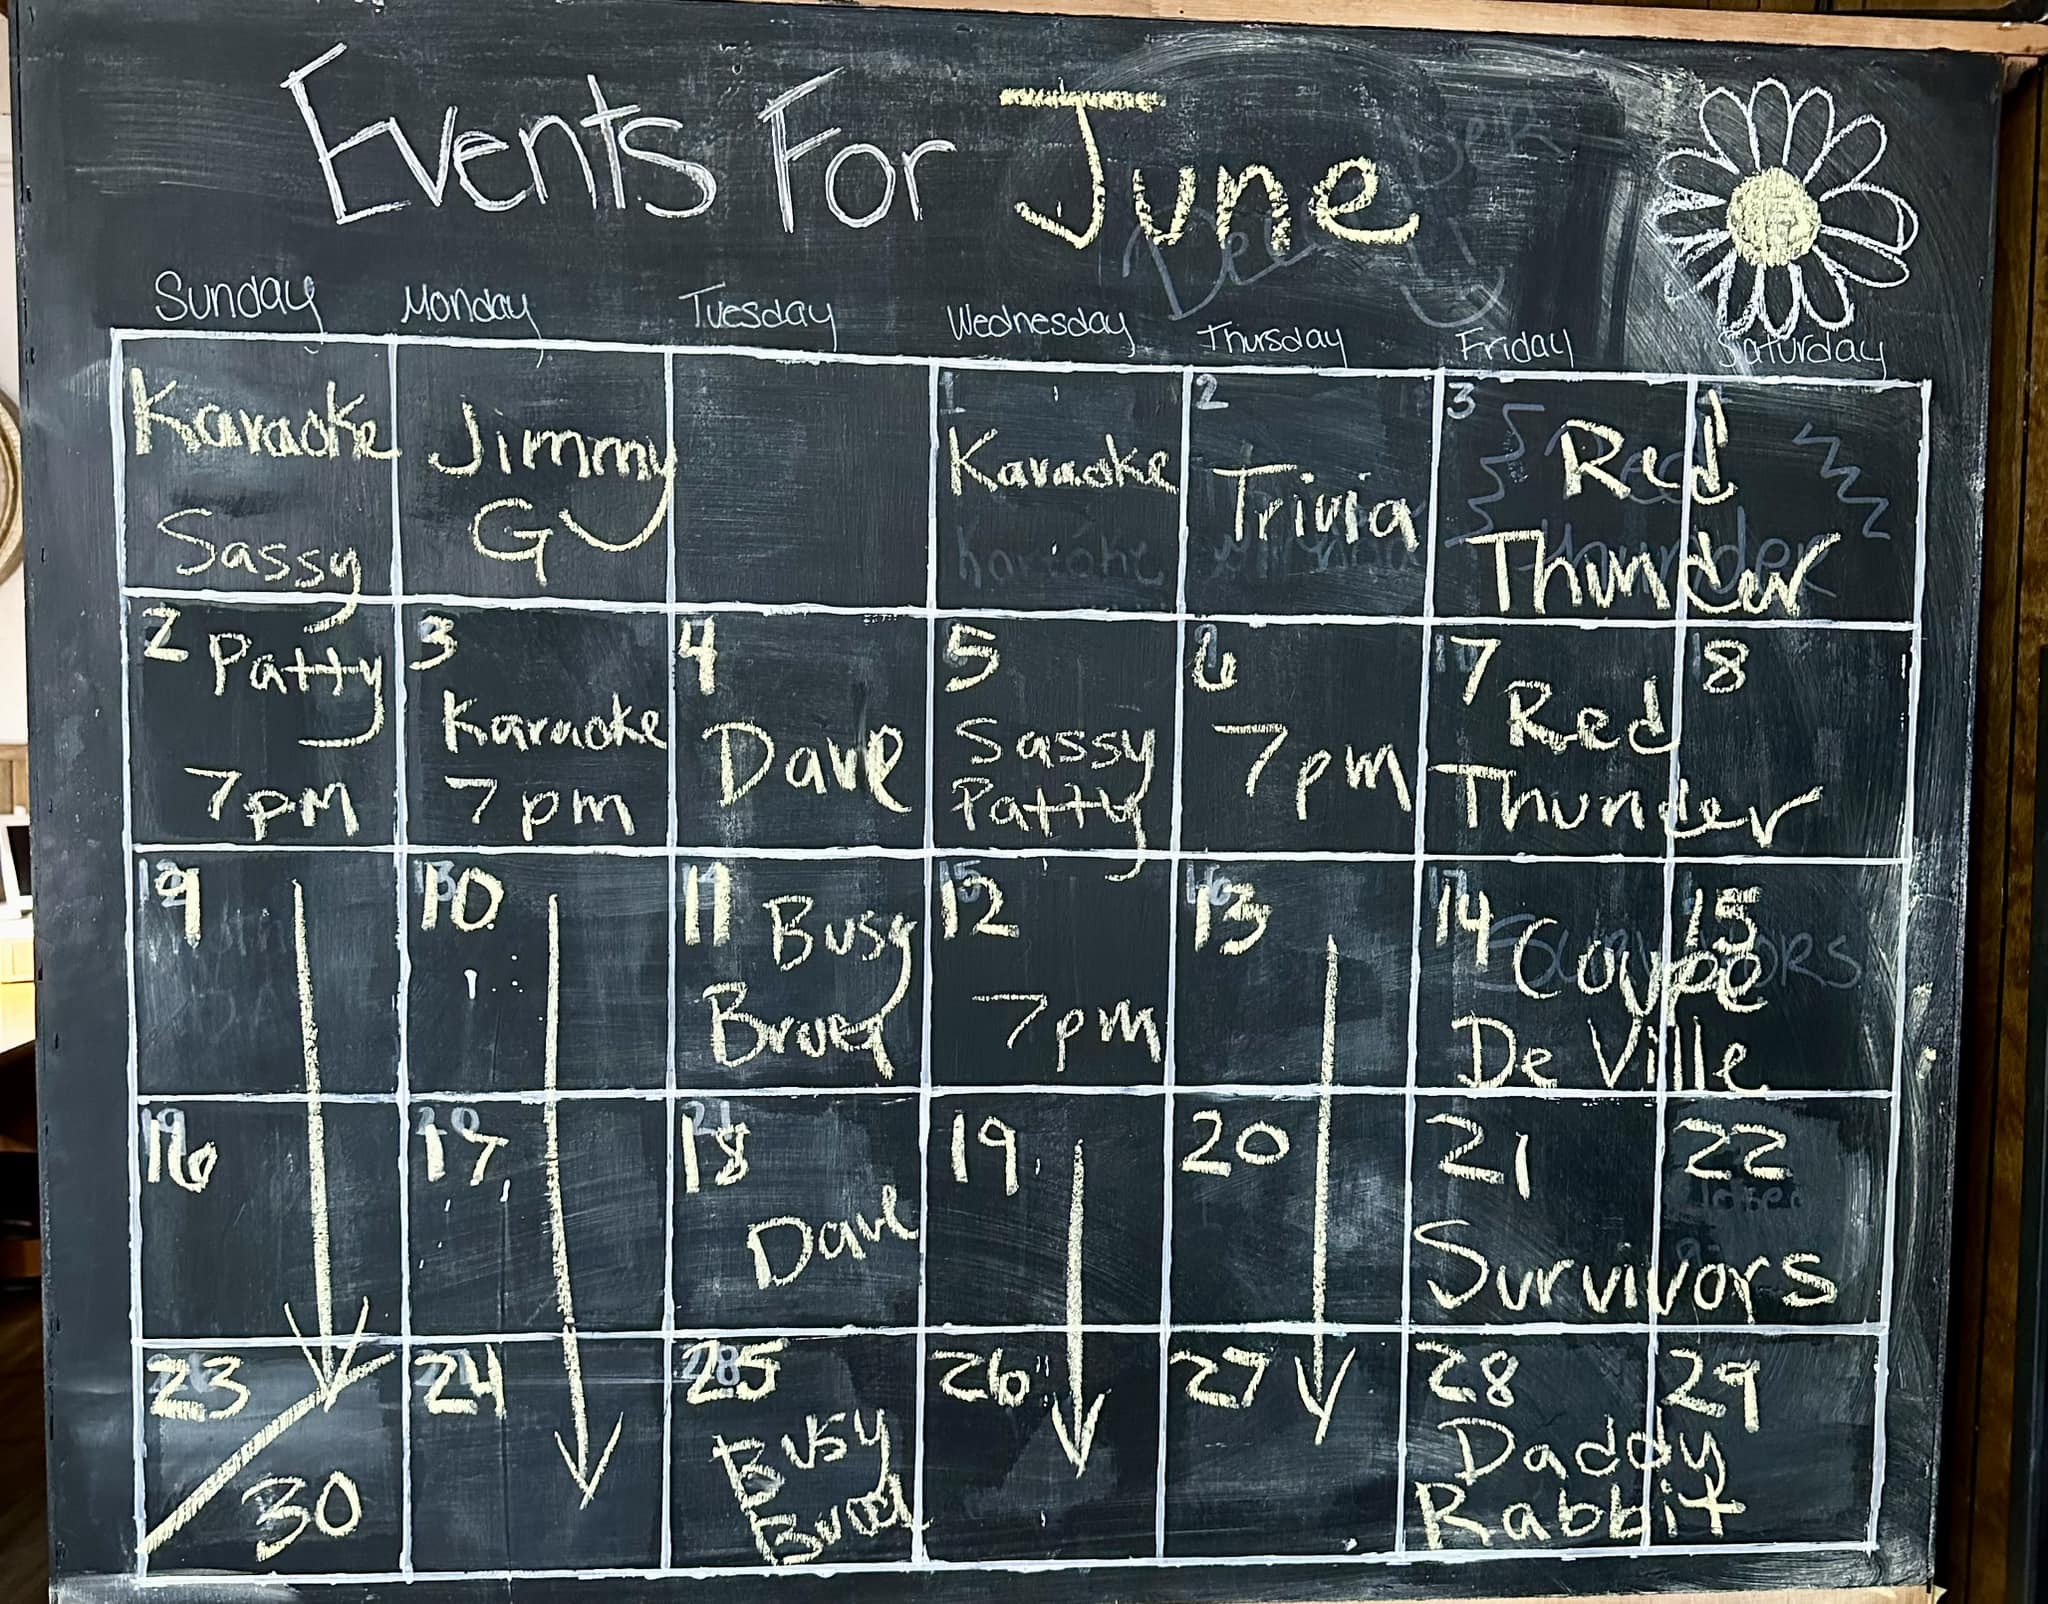 Events For June
Sunday Monday Tuesday Wednesday Thursday Friday Saturday
1 2 3 1
Karaoke
Sassy
Jimmy
G
Karaoke
Karaoke
Trivia
Red
Thunder
2 Patty
7pm
3
Karaoke
7pm
4
Dave
5
Sassy
Patty
6
7pm
7 8
Red
Thunder
9
10
11 Busy
12
7pm
13
14 15
Coupe
De Ville
16
17
18
Dave
19
20
21 22
Survivors
23
30
24
25
Busy
26
27
28 29
Daddy
Rabbit